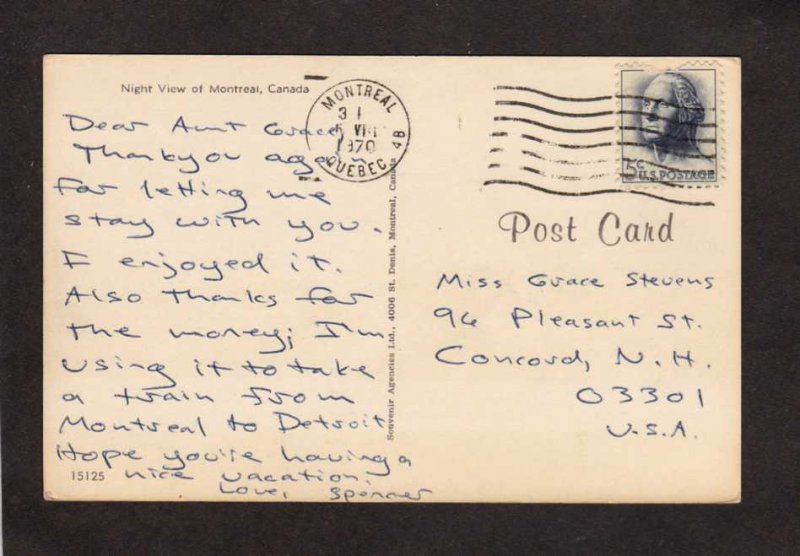 Night View of Montreal, Canada
Dear Aunt Grace,
Thankyou again
for letting me
stay with you.
I enjoyed it.
Also thanks for
the money; I'm
using it to take
a train from
Montreal to Detroit
Hope you're having a
nice vacation.
Love, Spencer
15125
Souvenir Agencies Ltd., 4006 St. Denis, Montreal, Canada
MONTREAL
1970
QUEBEC 4B
5c
U.S. POSTAGE
Post Card
Miss Grace Stevens
96 Pleasant St.
Concord, N.H.
03301
U.S.A.